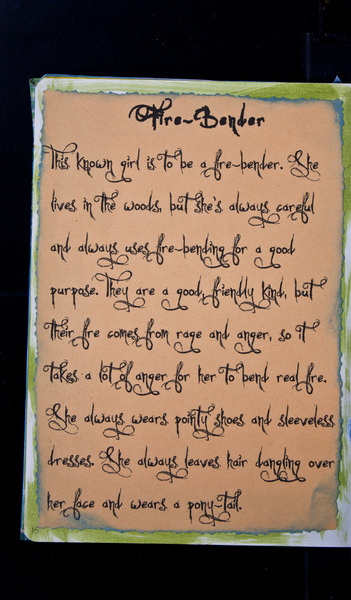 Fire-Bender
This known girl is to be a fire-bender. She
lives in the woods, but she's always careful
and always uses fire-bending for a good
purpose. They are a good, friendly kind, but
their fire comes from rage and anger, so it
takes a lot of anger for her to bend real fire.
She always wears pointy shoes and sleeveless
dresses. She always leaves hair dangling over
her face and wears a pony-tail.
15